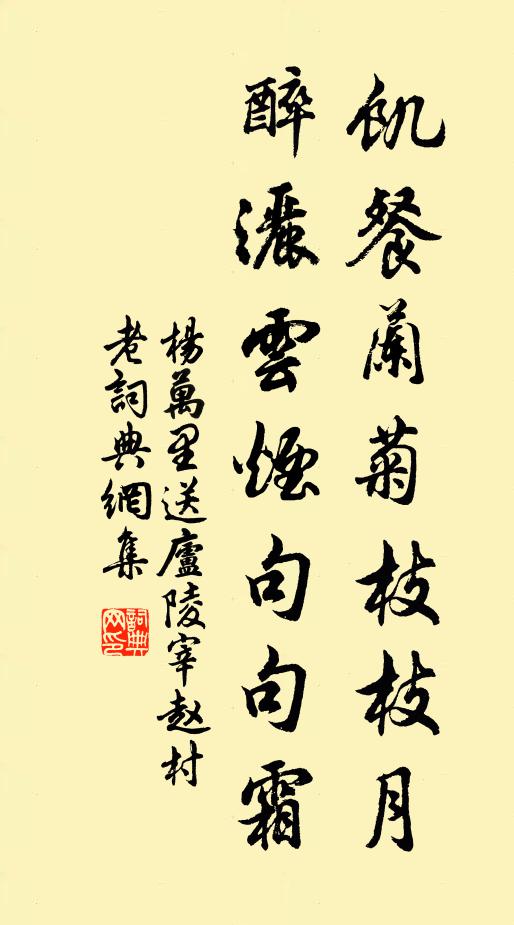 飢餐蘭菊枝枝月
醉灑雲煙句句霜
楊萬里送廬陵宰赵村
老詞典網集
詞典
网印